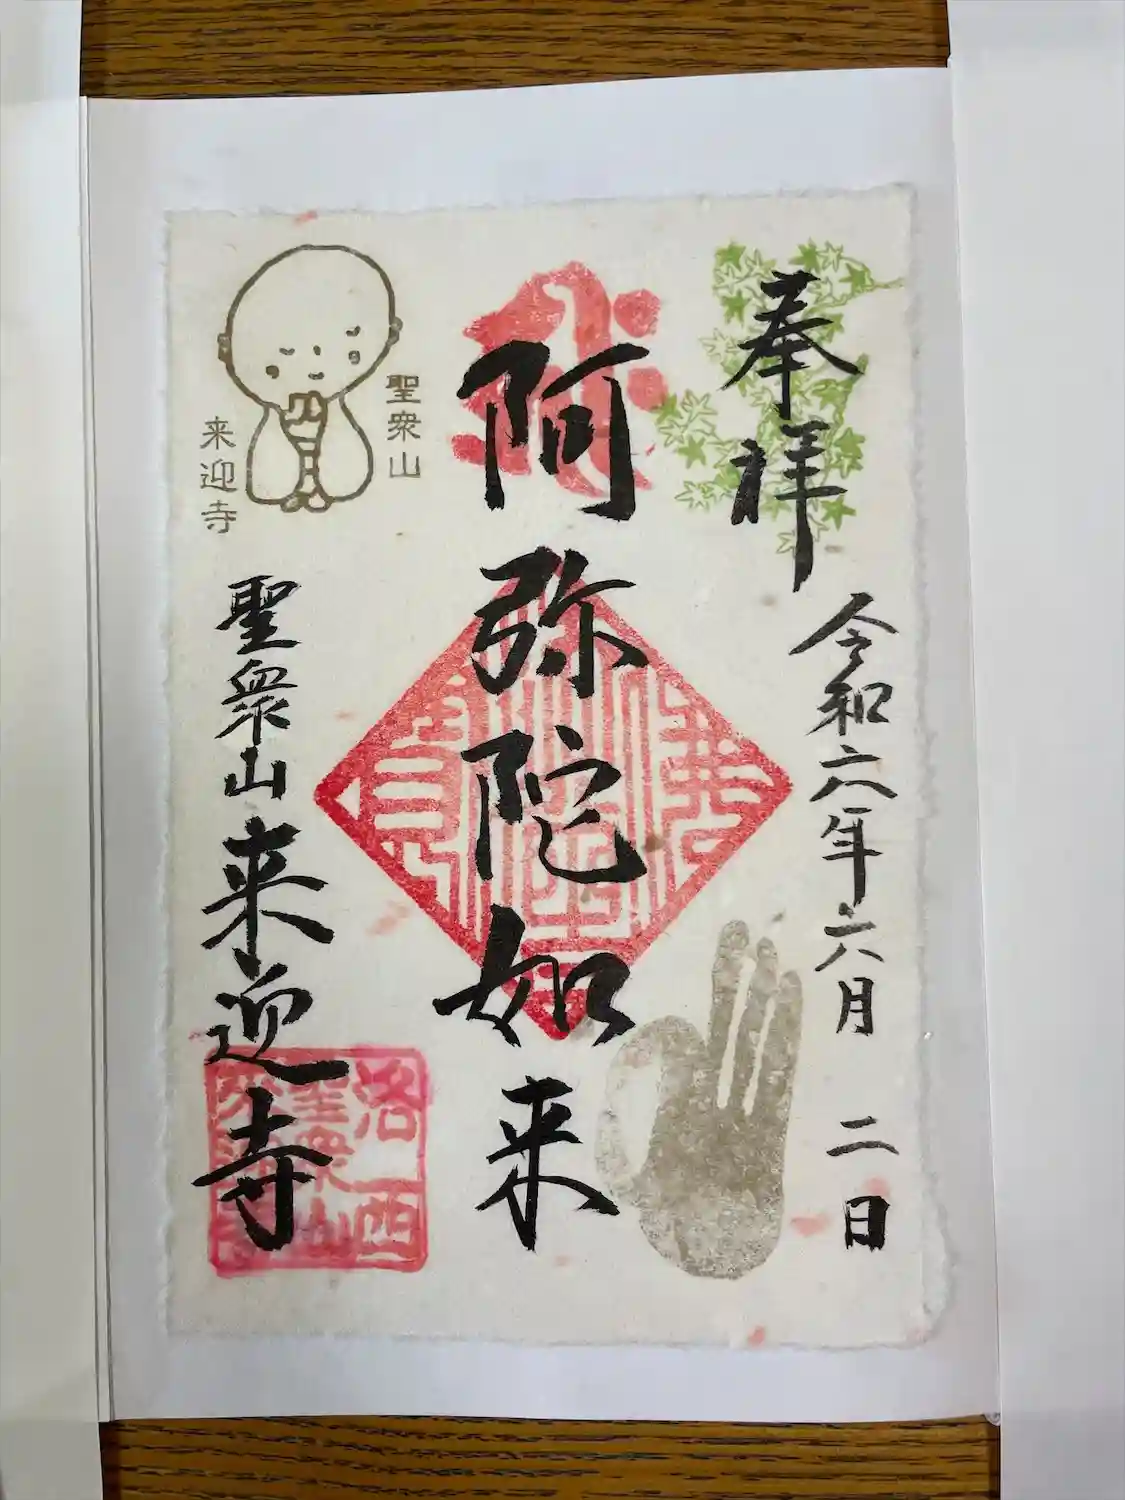 奉拝
令和六年六月二日
阿弥陀如来
聖衆山
来迎寺
聖衆山来迎寺
洛西
聖衆山
来迎寺